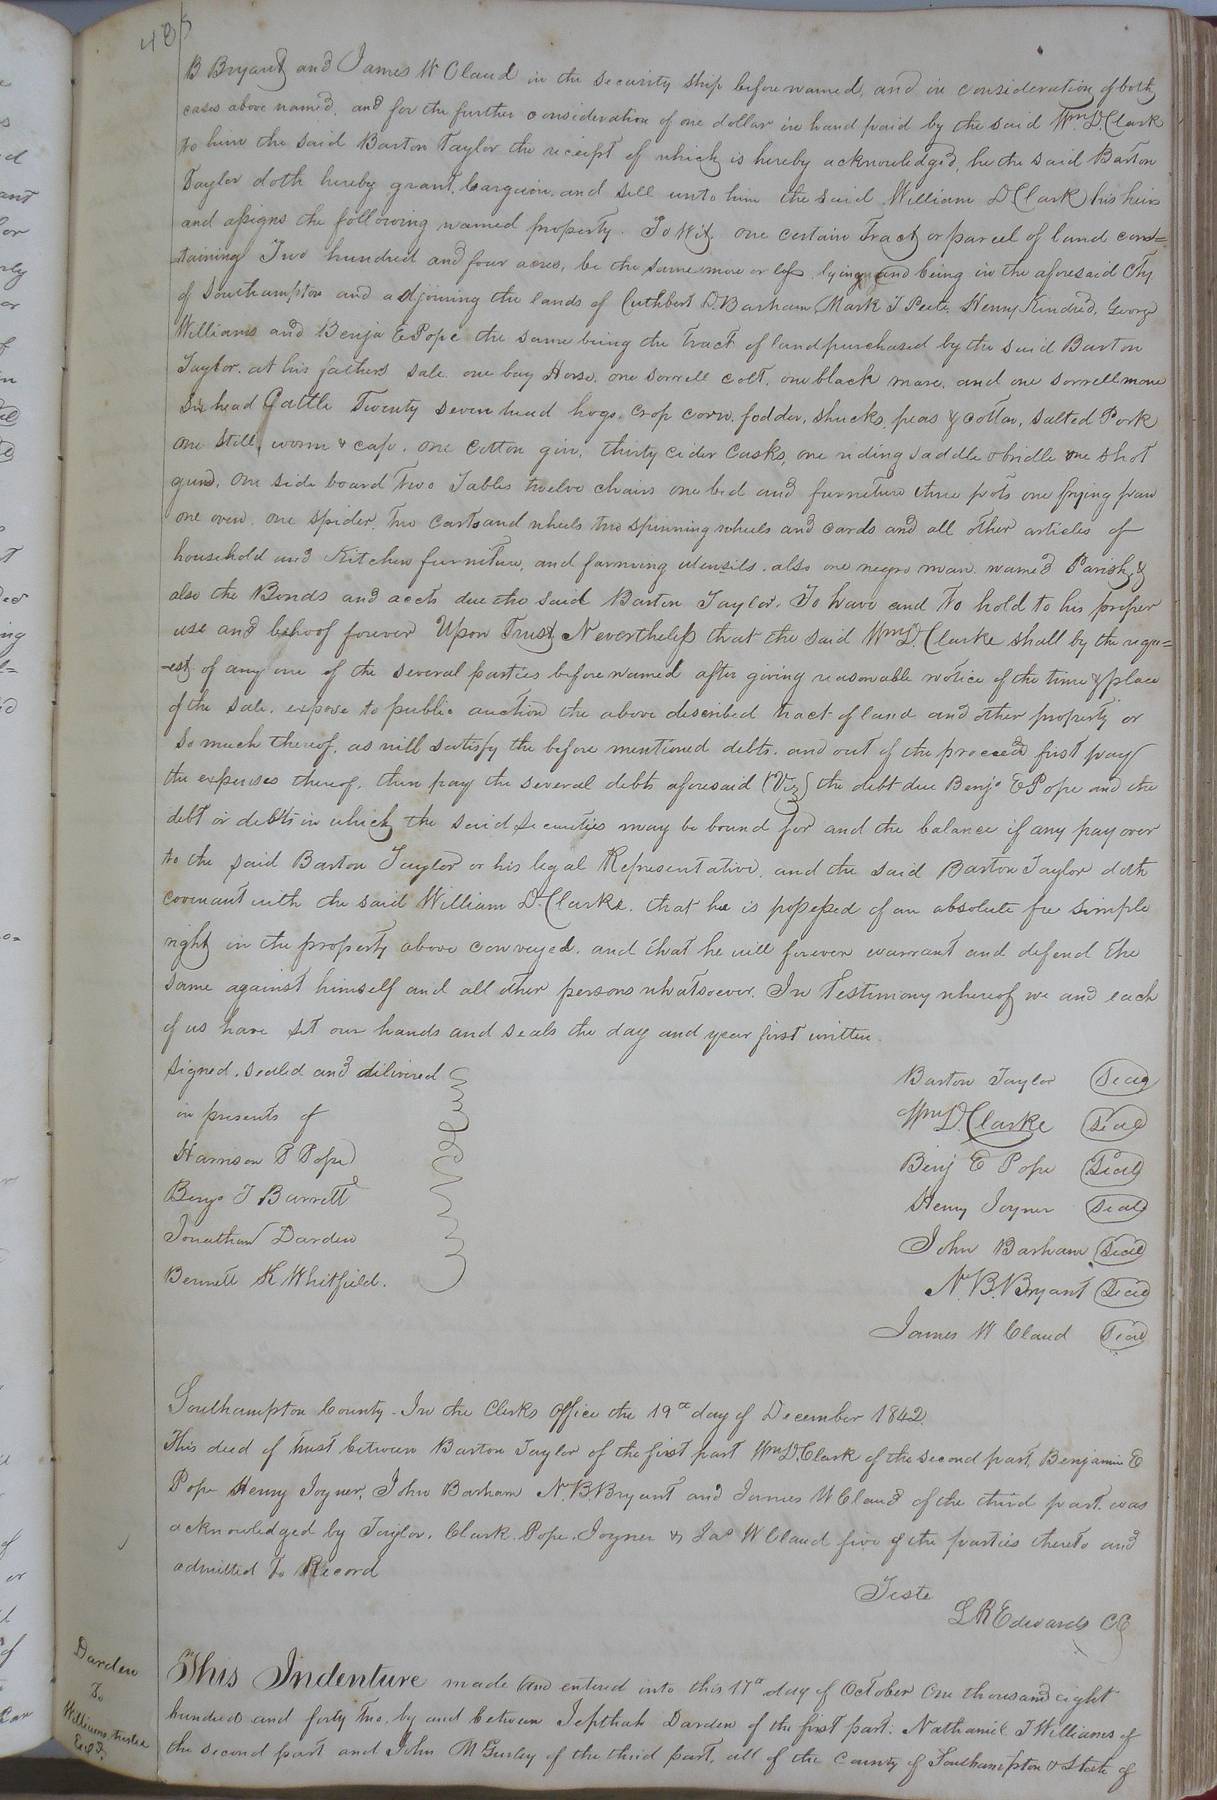 485
B Bryant and James W Claud in the security ship before named, and in consideration of both
cases above named, and for the further consideration of one dollar in hand paid by the said Wm. D. Clark
to him the said Barton Taylor the receipt of which is hereby acknowledged, he the said Barton
Taylor doth hereby grant, bargain, and sell unto him the said William D Clark his heirs
and assigns the following named property. To Wit, one certain Tract or parcel of land con=
=taining Two hundred and four acres, be the same more or less, lying and being in the aforesaid Cty
of Southampton and adjoining the lands of Cuthbert D. Barham, Mark T Peete, Henry Kindred, George
Williams and Benja E Pope the same being the tract of land purchased by the said Barton
Taylor, at his fathers sale, one bay Horse, one sorrell colt, one black mare, and one sorrell mare
Six head Cattle Twenty seven head hogs, crop corn, fodder, shucks, peas & cotton, salted Pork
one still, worm & cap, one cotton gin, thirty cider Casks, one riding saddle & bridle one shot
gun, one side board Two Tables twelve chairs one bed and furniture three pots one frying pan
one oven, one spider, two carts and wheels two spinning wheels and cards and all other articles of
household and Kitchen furniture, and farming utensils, also one negro man named Parish, &
also the Bonds and accts due the said Barton Taylor. To have and to hold to his proper
use and behoof forever Upon Trust Nevertheless that the said Wm. D. Clarke shall by the requ=
=est of any one of the several parties before named after giving reasonable notice of the time & place
of the sale, expose to public auction the above described tract of land and other property or
so much thereof, as will satisfy the before mentioned debts, and out of the proceeds first pay
the expenses thereof, then pay the several debts aforesaid (Viz) the debt due Benja E Pope and the
debt or debts in which the said securities may be bound for and the balance if any pay over
to the said Barton Taylor or his legal Representative, and the said Barton Taylor doth
covenant with the said William D. Clarke, that he is possessed of an absolute fee simple
right in the property above conveyed, and that he will forever warrant and defend the
same against himself and all other persons whatsoever. In Testimony whereof we and each
of us have set our hands and seals the day and year first written.
Signed, sealed and delivered
in presents of
Harrison P Pope
Benja T Barrett
Jonathan Darden
Bennett K Whitfield.
Barton Taylor Seal
Wm. D. Clarke Seal
Benj E Pope Seal
Henry Joyner Seal
John Barham Seal
N. B. Bryant Seal
James W Claud Seal
Southampton County. In the Clerks Office the 19th day of December 1842
This deed of trust between Barton Taylor of the first part Wm. D. Clark of the second part, Benjamin E
Pope Henry Joyner, John Barham N. B. Bryant and James W Claud of the third part was
acknowledged by Taylor, Clark, Pope, Joyner & Jas W Claud five of the parties thereto and
admitted To Record
Teste
L R Edwards CC
Darden
To
Williams trustee
This Indenture made and entered into this 17th day of October One thousand eight
hundred and forty two, by and between Jepthah Darden of the first part, Nathaniel T Williams of
the second part and John M Gurley of the third part, all of the County of Southampton & State of